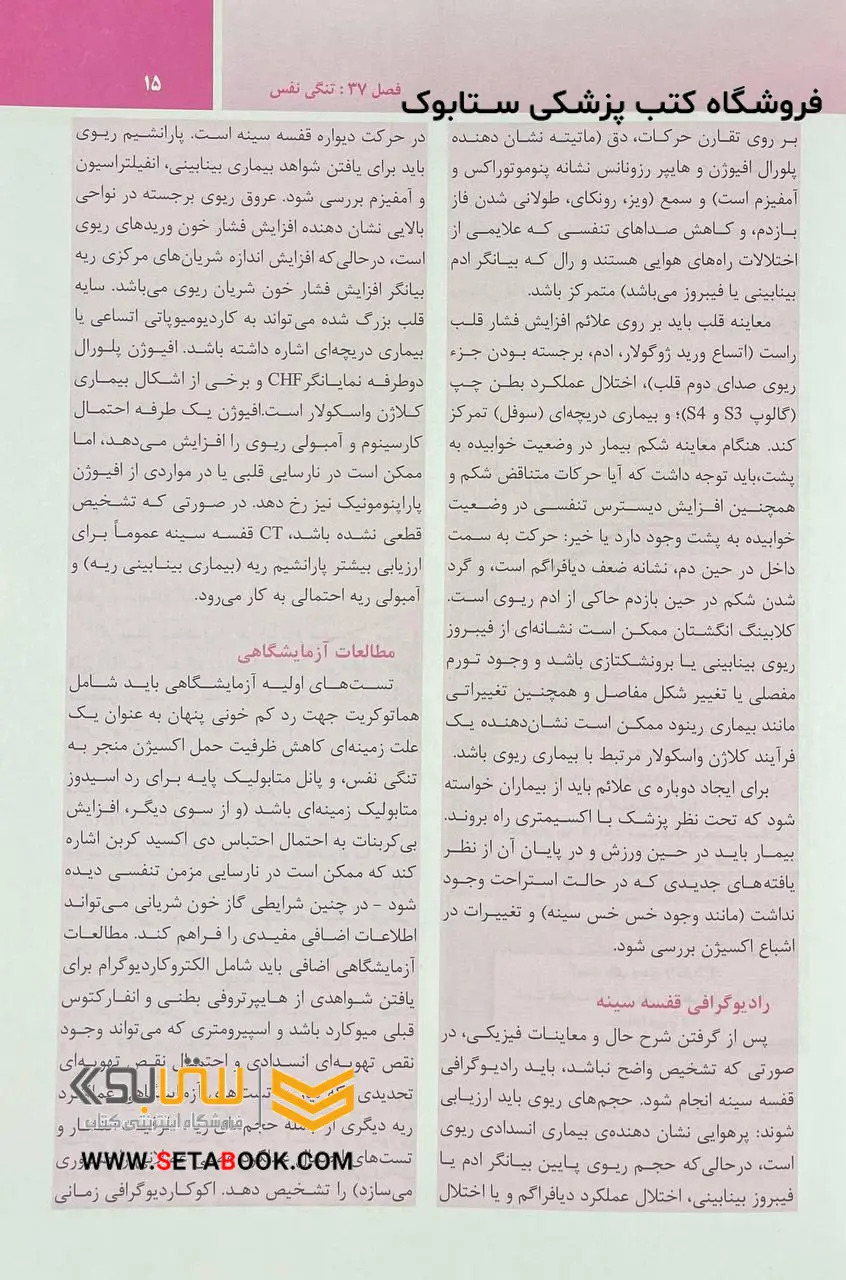 ۱۵
فصل ۳۷ : تنگی نفس
فروشگاه کتب پزشکی ستابوک
بر روی تقارن حرکات، دق (ماتیته نشان دهنده
پلورال افیوژن و هایپر رزونانس نشانه پنوموتوراکس و
آمفیزم است) و سمع (ویز، رونکای، طولانی شدن فاز
بازدم، و کاهش صداهای تنفسی که علایمی از
اختلالات راه‌های هوایی هستند و رال که بیانگر ادم
بینابینی یا فیبروز می‌باشد) متمرکز باشد.
معاینه قلب باید بر روی علائم افزایش فشار قلب
راست (اتساع ورید ژوگولار، ادم، برجسته بودن جزء
ریوی صدای دوم قلب)، اختلال عملکرد بطن چپ
(گالوپ S3 و S4)؛ و بیماری دریچه‌ای (سوفل) تمرکز
کند. هنگام معاینه شکم بیمار در وضعیت خوابیده به
پشت،باید توجه داشت که آیا حرکات متناقض شکم و
همچنین افزایش دیسترس تنفسی در وضعیت
خوابیده به پشت وجود دارد یا خیر: حرکت به سمت
داخل در حین دم، نشانه ضعف دیافراگم است، و گرد
شدن شکم در حین بازدم حاکی از ادم ریوی است.
کلابینگ انگشتان ممکن است نشانه‌ای از فیبروز
ریوی بینابینی یا برونشکتازی باشد و وجود تورم
مفصلی یا تغییر شکل مفاصل و همچنین تغییراتی
مانند بیماری رینود ممکن است نشان‌دهنده یک
فرآیند کلاژن واسکولار مرتبط با بیماری ریوی باشد.
برای ایجاد دوباره ی علائم باید از بیماران خواسته
شود که تحت نظر پزشک با اکسیمتری راه بروند.
بیمار باید در حین ورزش و در پایان آن از نظر
یافته‌های جدیدی که در حالت استراحت وجود
نداشت (مانند وجود خس خس سینه) و تغییرات در
اشباع اکسیژن بررسی شود.
رادیوگرافی قفسه سینه
پس از گرفتن شرح حال و معاینات فیزیکی، در
صورتی که تشخیص واضح نباشد، باید رادیوگرافی
قفسه سینه انجام شود. حجم‌های ریوی باید ارزیابی
شوند: پرهوایی نشان دهنده‌ی بیماری انسدادی ریوی
است، درحالی‌که حجم ریوی پایین بیانگر ادم یا
فیبروز بینابینی، اختلال عملکرد دیافراگم و یا اختلال
در حرکت دیواره قفسه سینه است. پارانشیم ریوی
باید برای یافتن شواهد بیماری بینابینی، انفیلتراسیون
و آمفیزم بررسی شود. عروق ریوی برجسته در نواحی
بالایی نشان دهنده افزایش فشار خون وریدهای ریوی
است، درحالی‌که افزایش اندازه شریان‌های مرکزی ریه
بیانگر افزایش فشار خون شریان ریوی می‌باشد. سایه
قلب بزرگ شده می‌تواند به کاردیومیوپاتی اتساعی یا
بیماری دریچه‌ای اشاره داشته باشد. افیوژن پلورال
دوطرفه نمایانگرCHF و برخی از اشکال بیماری
کلاژن واسکولار است.افیوژن یک طرفه احتمال
کارسینوم و آمبولی ریوی را افزایش می‌دهد، اما
ممکن است در نارسایی قلبی یا در مواردی از افیوژن
پاراپنومونیک نیز رخ دهد. در صورتی که تشخیص
قطعی نشده باشد، CT قفسه سینه عموماً برای
ارزیابی بیشتر پارانشیم ریه (بیماری بینابینی ریه) و
آمبولی ریه احتمالی به کار می‌رود.
مطالعات آزمایشگاهی
تست‌های اولیه آزمایشگاهی باید شامل
هماتوکریت جهت رد کم خونی پنهان به عنوان یک
علت زمینه‌ای کاهش ظرفیت حمل اکسیژن منجر به
تنگی نفس، و پانل متابولیک پایه برای رد اسیدوز
متابولیک زمینه‌ای باشد (و از سوی دیگر، افزایش
بی‌کربنات به احتمال احتباس دی اکسید کربن اشاره
کند که ممکن است در نارسایی مزمن تنفسی دیده
شود – در چنین شرایطی گاز خون شریانی می‌تواند
اطلاعات اضافی مفیدی را فراهم کند. مطالعات
آزمایشگاهی اضافی باید شامل الکتروکاردیوگرام برای
یافتن شواهدی از هایپرتروفی بطنی و انفارکتوس
قبلی میوکارد باشد و اسپیرومتری که می‌تواند وجود
نقص تهویه‌ای انسدادی و احتمال نقص تهویه‌ای
تحدیدی
ریه دیگری از جمله حجم‌های ریه
تست‌های
می‌سازد) را تشخیص دهد. اکوکاردیوگرافی زمانی
ستابوک
فروشگاه اینترنتی کتاب
WWW.SETABOOK.COM